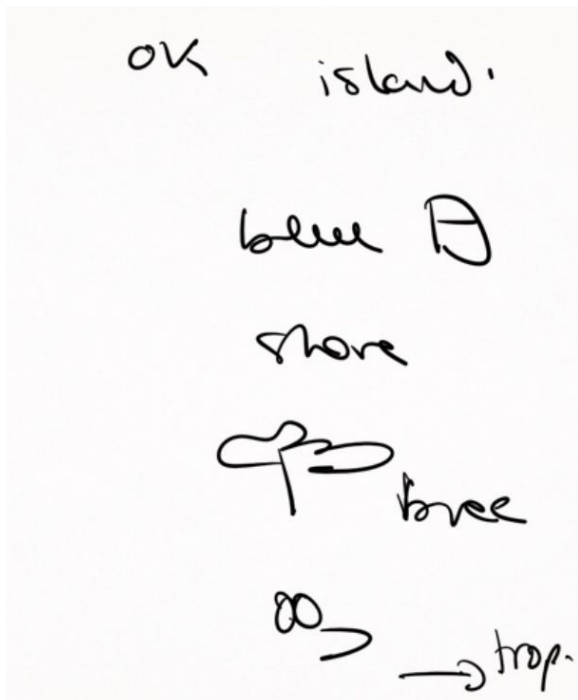 OK island.
blue
shore
tree
→ trop.